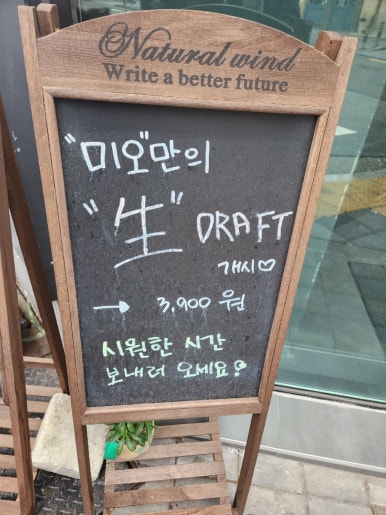 Natural wind
Write a better future
"미오"만의
"生" DRAFT
개시♡
→ 3,900 원
시원한 시간
보내러 오세요?